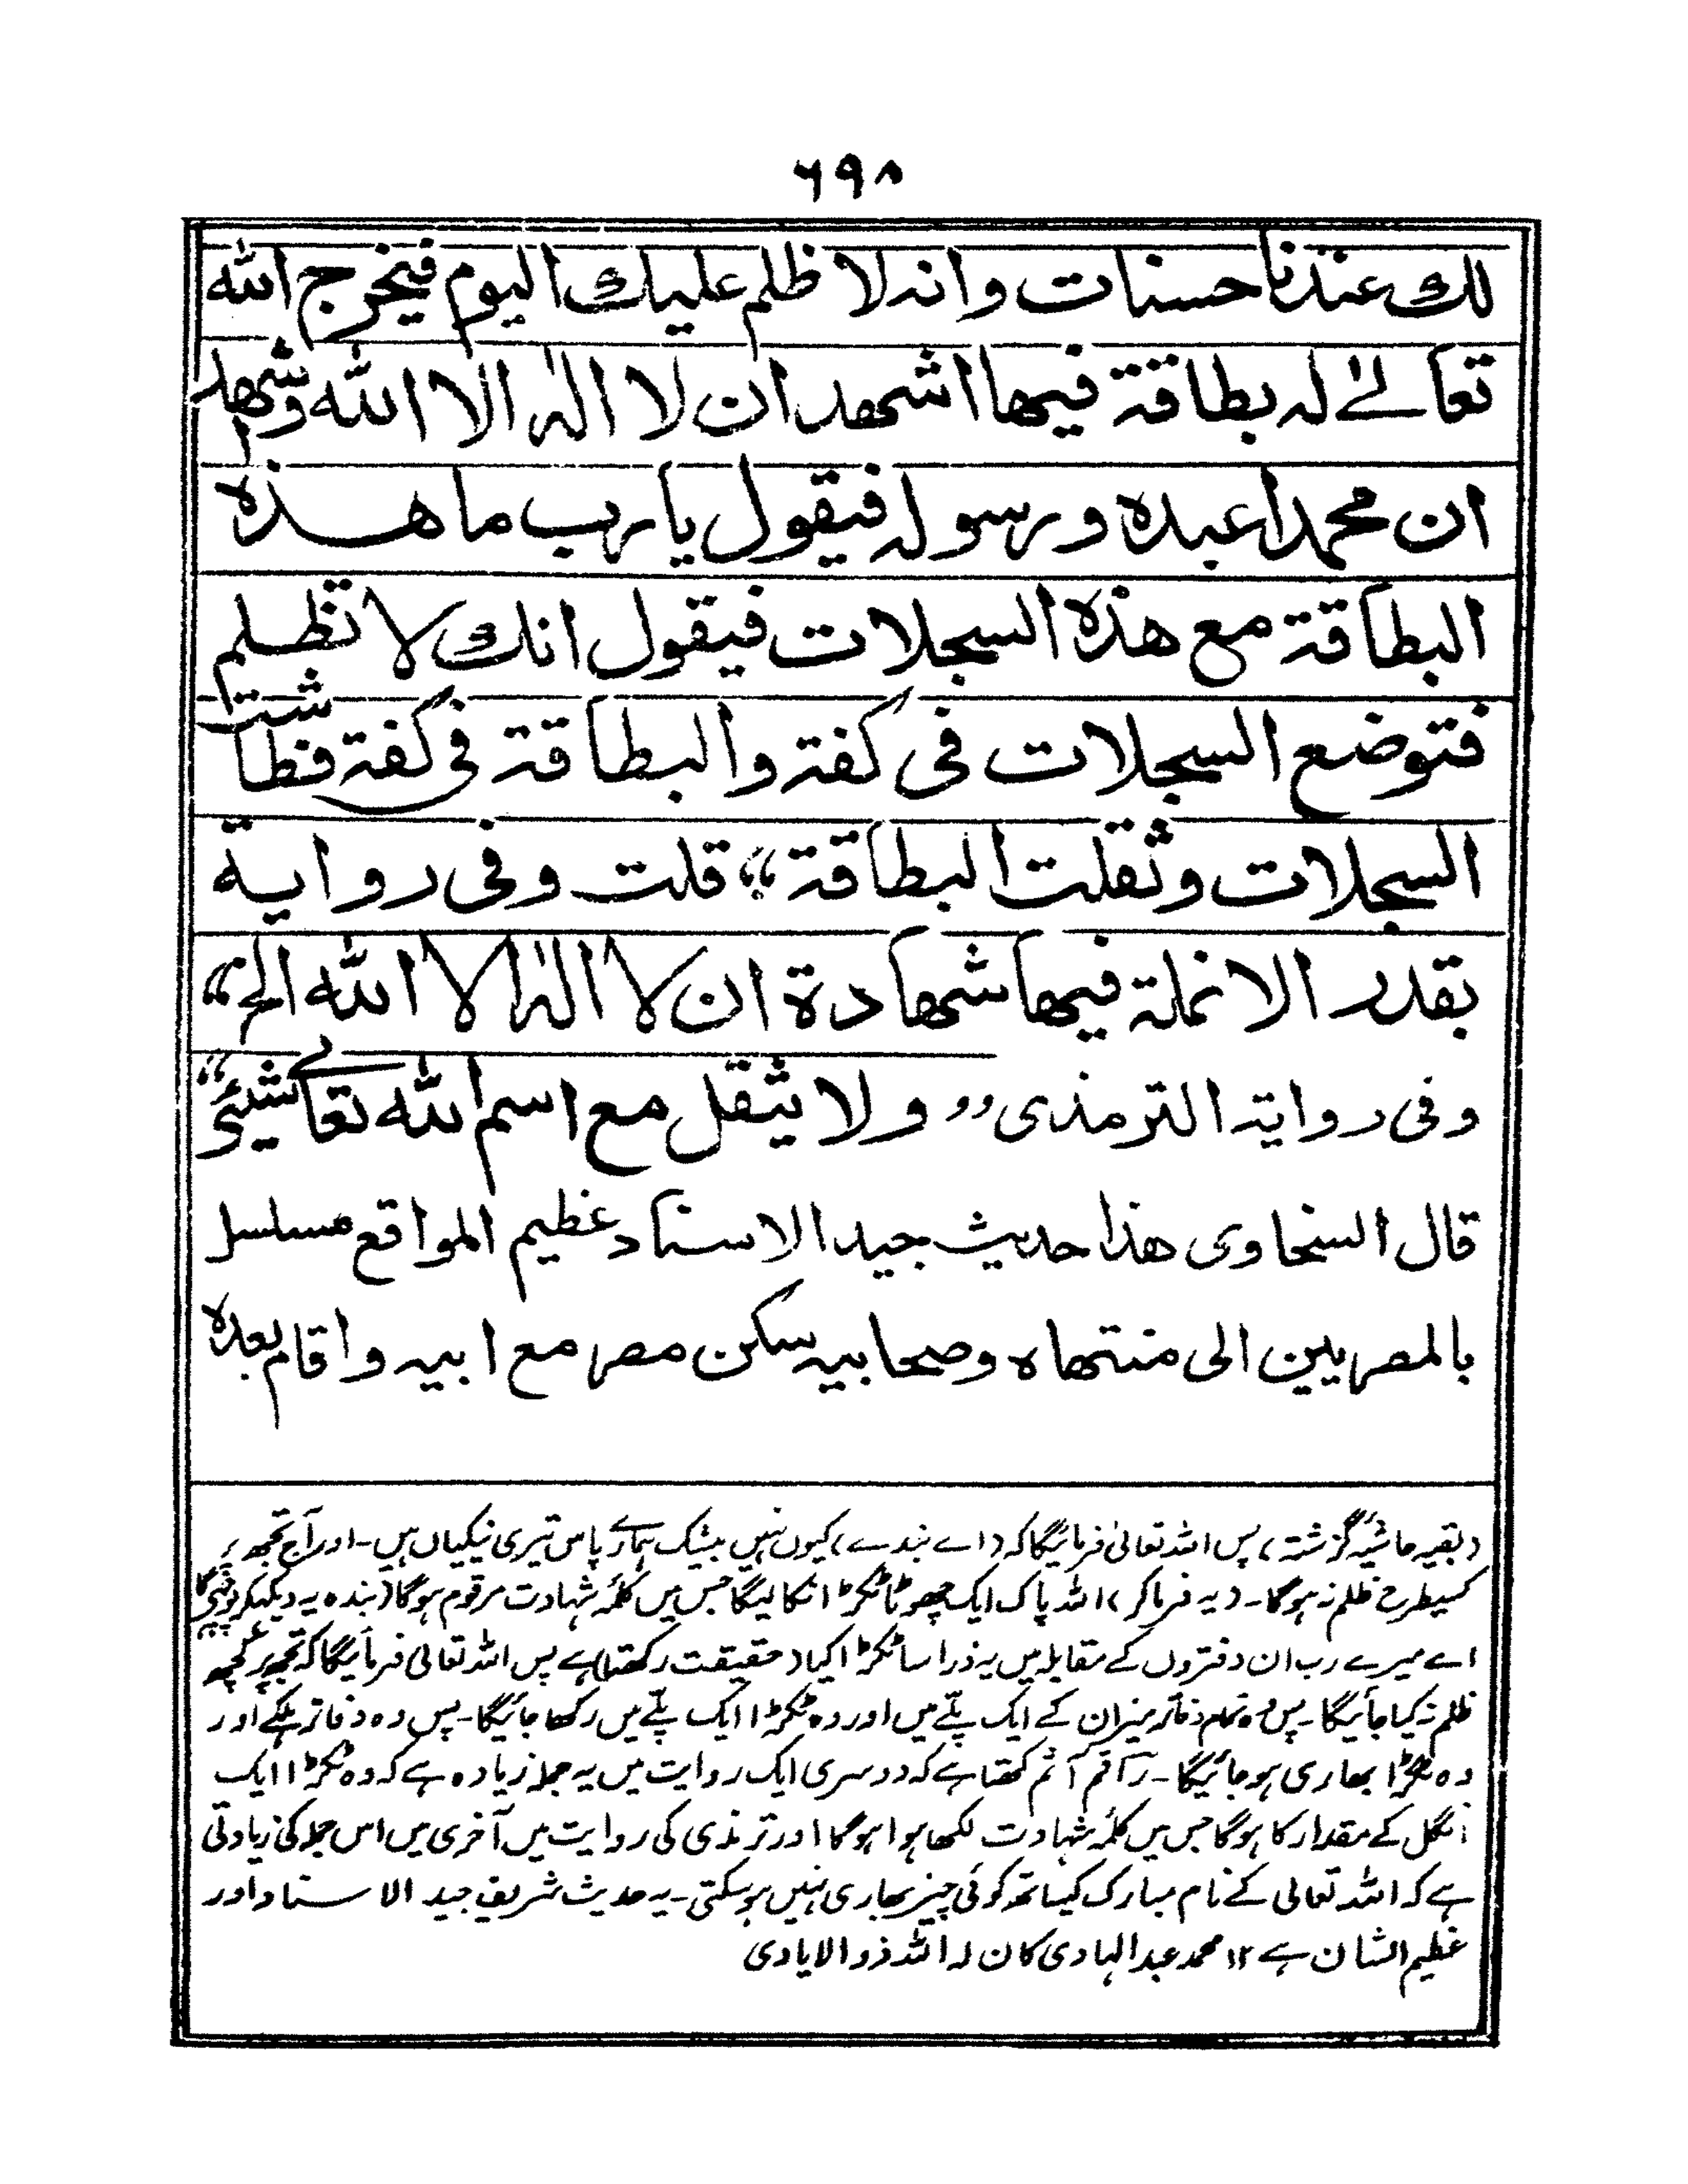 ٦٩٨
لك عندنا حسنات وانه لا ظلم عليك اليوم فيخرج الله
تعالے له بطاقة فيها اشهد ان لا اله الا الله واشهد
ان محمدا عبده ورسوله فيقول يا رب ما هذه
البطاقة مع هذه السجلات فيقول انك لا تظلم
فتوضع السجلات فى كفة والبطاقة فى كفة فطاشت
السجلات وثقلت البطاقة،، قلت وفى رواية
بقدر الانملة فيها شهادة ان لا اله الا الله الخ،،
وفى رواية الترمذى ,, ولا يثقل مع اسم الله تعالے شيئ،،
قال السخاوى هذا حديث جيد الاسناد عظيم المواقع مسلسل
بالمصريين الى منتهاه وصحابيه سكن مصر مع ابيه واقام بعده
(بقیہ حاشیۂ گزشتہ) پس اللہ تعالیٰ فرمائیگا کہ (اے بندے) کیوں نہیں بیشک ہمارے پاس تیری نیکیاں ہیں۔ اور آج تجھ پر
کسیطرح ظلم نہ ہوگا۔ (یہ فرماکر) اللہ پاک ایک چھوٹا ٹکڑا نکالیگا جس میں کلمۂ شہادت مرقوم ہوگا (بندہ یہ دیکھکر
اے میرے رب ان دفتروں کے مقابلہ میں یہ ذرا سا ٹکڑا کیا (حقیقت رکھتا) ہے پس اللہ تعالیٰ فرمائیگا کہ تجھ پر کچھ
ظلم نہ کیا جائیگا۔ پس وہ تمام دفاتر میزان کے ایک پلّے میں اور وہ ٹکڑا ایک پلّے میں رکھا جائیگا۔ پس وہ دفاتر ہلکے اور
وہ ٹکڑا بھاری ہوجائیگا۔ راقم آثم کہتا ہے کہ دوسری ایک روایت میں یہ جملہ زیادہ ہے کہ وہ ٹکڑا ایک
انگل کے مقدار کا ہوگا جس میں کلمۂ شہادت لکھا ہوا ہوگا اور ترمذی کی روایت میں آخری میں اس جملہ کی زیادتی
ہے کہ اللہ تعالی کے نام مبارک کیساتھ کوئی چیز بھاری نہیں ہوسکتی۔ یہ حدیث شریف جید الاسناد اور
عظیم الشان ہے ۱۲ محمد عبدالہادی کان لہ اللہ ذوالایادی